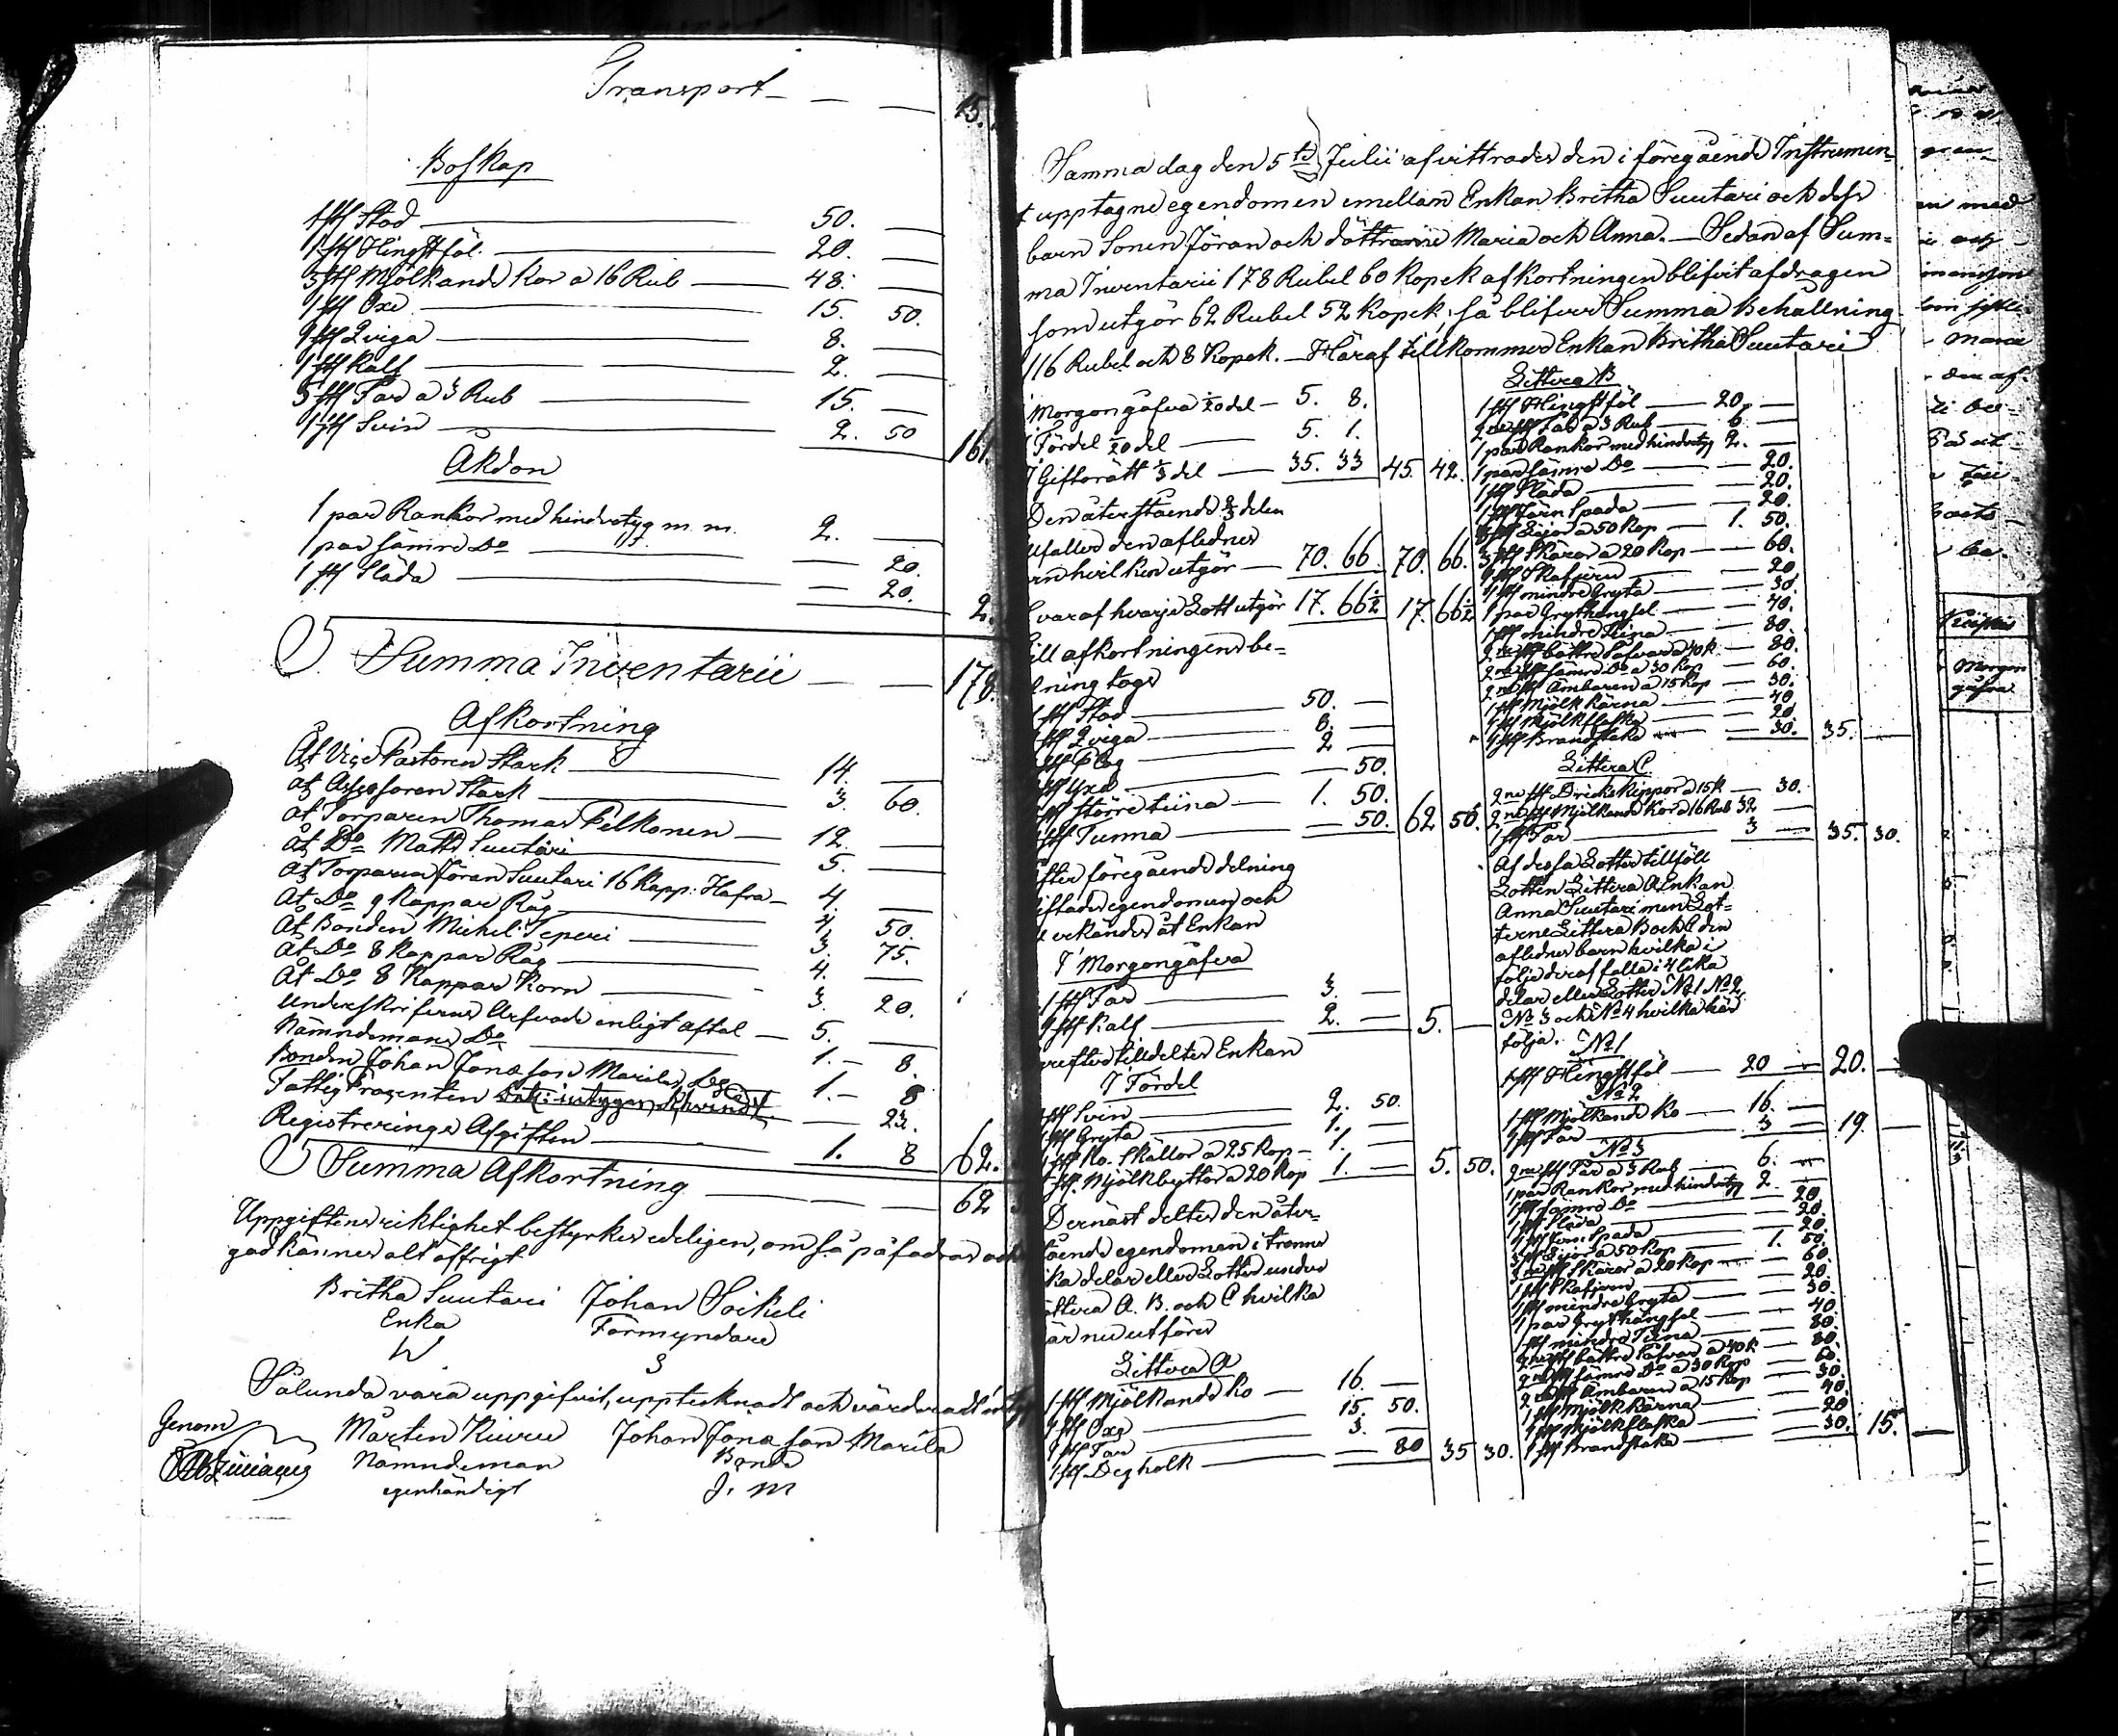 Transport — — — 15.
Boskap
1 st Stod — 50. —
1 st Hingstföl. — 20. —
3 st Mjölkande Kor a 16 Rub — 48. —
1 st Oxe — 15. 50.
1 st Qviga — 8. —
1 st Kalf — 2. —
5 st Får a 3 Rub — 15. —
1 st Svin — 2. 50 161.
Åkdon
1 par Kankor med hindertyg m. m. 2. —
1 par sämre Do — — 20.
1 st Släda — — 20. 2.
Summa Inventarii — — 178.
Afkortning
At Vice Pastoren Stark — 14. —
at Assessoren Stark — 3. 60.
at Torparen Thomas Pelkonen — 12. —
åt Do Matts Suutari — 5. —
at Torparen Jöran Suutari 16 Kapp: Hafra — 4. —
At Do 9 Kappar Råg — 4. 50.
At Bonden Michel Teperi — 3. 75.
At Do 8 Kappar Råg — 4. —
At Do 8 Kappar Korn — 3. 20.
Underskrifvens Arfvode enligt aftal — 5. —
Nämndemans Do — 1. — 8.
Bonden Johan Jonasson Marilas Do — 1. — 8
Fattig Procenten — 23.
Registrerings Afgiften — 1. 8 62.
Summa Afkortning — — — 62
Uppgiftens riktighet bestyrkes edeligen, om så påfadras och
godkännes alt öffrigt
Britha Suutari Johan Soikeli
Enka Förmyndare
Sålunda vara uppgifvit, upptecknadt och värderadt
Genom Mårten Kiuru Johan Jonasson Marila
Nämndeman Bonde
egenhändigt J. M
Samma dag den 5te Julii afvittrades den i föregående Instrumen-
t upptagne egendomen emellan Enkan Britha Suutari och dess
barn Sonen Jöran och döttrarne Maria och Anna. — Sedan af Sum-
ma Inventarii 178 Rubel 60 Kopek afkortningen blifvit afdragen
som utgör 62 Rubel 52 Kopek, så blifver Summa Behållning
116 Rubel och 8 Kopek. — Häraf tillkommer Enkan Britha Suutari
Morgongåfva 1/20 del — 5. 8.
Fördel 1/20 del — 5. 1.
Giftorätt 1/3 del — 35. 33 45. 42.
Den återstående 2/3 delen
tillfaller den aflednes
barn hvilken utgör — 70. 66. 70. 66.
hvaraf hvarje Lott utgör 17. 66½ 17. 66½
Till afkortningens be-
talning togs
1 st Stod — 50. —
1 st Qviga — 8. —
1 st Plog — 2 —
1 st Yxa — — 50.
1 st större tiina — 1. 50.
1 st Tunna — — 50. 62 50.
Efter föregående delning
skiftades egendomen och
erkändes åt Enkan
I Morgongåfva
1 st Får — 3. —
1 st Kalf — 2. — 5. —
Derefter tilldeltes Enkan
I Fördel
1 st Svin — 2. 50.
1 st Gryta — 1. —
4 st Ko. Skällor a 25 Kop — 1. —
5 st. Mjölkbyttor a 20 Kop 1. — 5. 50.
Dernäst deltes den åter-
stående egendomen i trenne
lika delar eller Lotter under
Littera A. B. och C hvilka
här nu utföres
Littera A
1 st Mjölkande Ko — 16. —
1 st Oxe — 15. 50.
1 st Får — 3. —
1 st Deg holk — — 80 35 30.
Littera B
1 st Hingstföl — 20. —
2ne st Får a 3 Rub — 6. —
1 par Kankor med hindertyg 2. —
1 par sämre Do — — 20.
1 st Släda — — 20.
1 st Järn Spada — — 20.
3 st Lijor a 50 Kop — 1. 50.
3 st Skäror a 20 Kop — — 60.
1 st Skafjern — — 20
1 st mindre Gryta — — 30.
1 par Grythängsel — — 40.
1 st mindre Tiina — — 80.
2ne st bättre Såfvar a 40 K — — 80.
2ne st sämre Do a 30 Kop — — 60.
2ne st Ämbaren a 15 Kop — — 30.
1 st Mjölk Kärna — — 40
1 st Mjölkflaska — — 20.
1 st Brandstake — — 30. 35. —
Littera C
2ne st Dricks Kippor a 15 K — 30.
2ne st Mjölkande Kor a 16 Rub 32 —
1 st Får — 3 — 35. 30.
Af dessa Lotter tillföll
Lotten Littera A Enkan
Anna Suutari men Lot-
terne Littera B och C den
aflednes barn hvilka i
följe deraf falla i 4 lika
delar eller Lotter No 1 No 2.
No 3 och No 4 hvilka här
följa.
No 1
1 st Hingstföl — 20 — 20. —
No 2
1 st Mjölkande Ko — 16. —
1 st Får — 3 — 19. —
No 3
2ne st Får a 3 Rub — 6. —
1 par Kankor med hindertyg 2. —
1 st sämre Do — — 20
1 st Släda — — 20.
1 st Jern Spada — — 20.
3 st Lijor a 50 Kop — 1. 50.
3 st Skäror a 20 Kop — — 60.
1 st Skafjern — — 20
1 st mindre Gryta — — 30.
1 par Grythängsel — — 40.
1 st mindre Tiina — — 80.
2ne st bättre Såfvar a 40 K — — 80.
2ne st sämre Do a 30 Kop — — 60.
2ne st Ämbaren a 15 Kop — — 30.
1 st Mjölk Kärna — — 40.
1 st Mjölkflaska — — 20
1 st Brandstake — — 30. 15. —